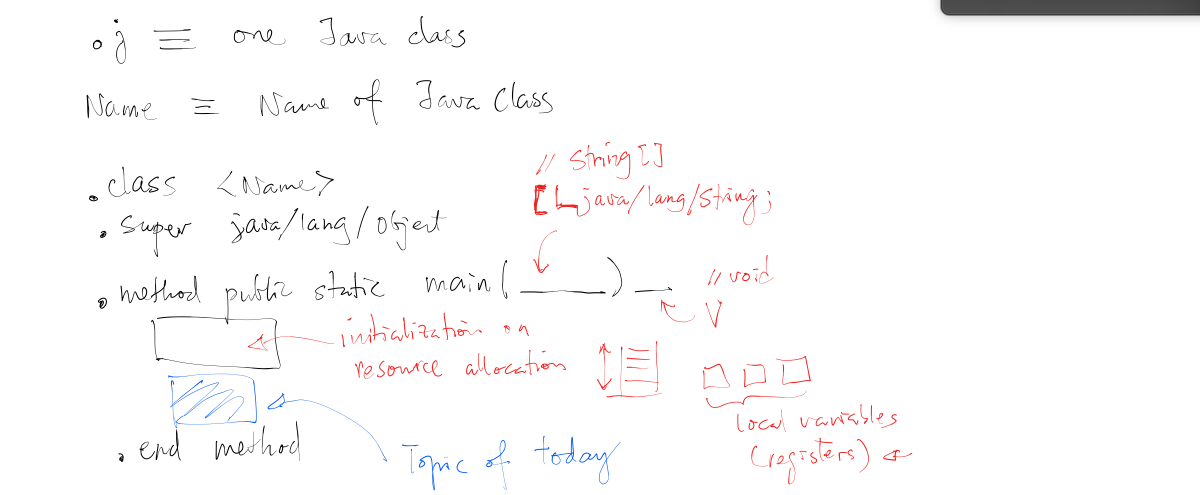 .j ≡ one Java class
Name ≡ Name of Java Class
// String[]
[Ljava/lang/String;
.class <Name>
.super java/lang/Object
.method public static main(______) __
// void
V
initialization on
resource allocation
local variables
(registers)
.end method
Topic of today